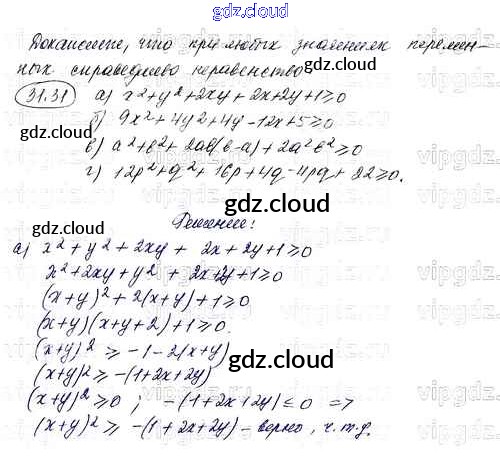 gdz.cloud
Докажите, что при любых значениях перемен-
ных справедливо неравенство
gdz.cloud
31.31 а) x²+y²+2xy+2x+2y+1≥0
б) 9x²+4y²+4y-12x+5≥0
gdz.cloud
в) a²+b²+2ab(b-a)+2a²b²≥0
г) 12p²+q²+16p+4q-4pq+82≥0.
gdz.cloud
Решение:
а) x²+y²+2xy+2x+2y+1≥0
gdz.cloud
x²+2xy+y²+2x+2y+1≥0
(x+y)²+2(x+y)+1≥0
(x+y)(x+y+2)+1≥0.
(x+y)²≥-1-2(x+y)
gdz.cloud
(x+y)²≥-(1+2x+2y)
(x+y)²≥0; -(1+2x+2y)≤0 =>
(x+y)²≥-(1+2x+2y) - верно, ч.т.д.
gdz.cloud